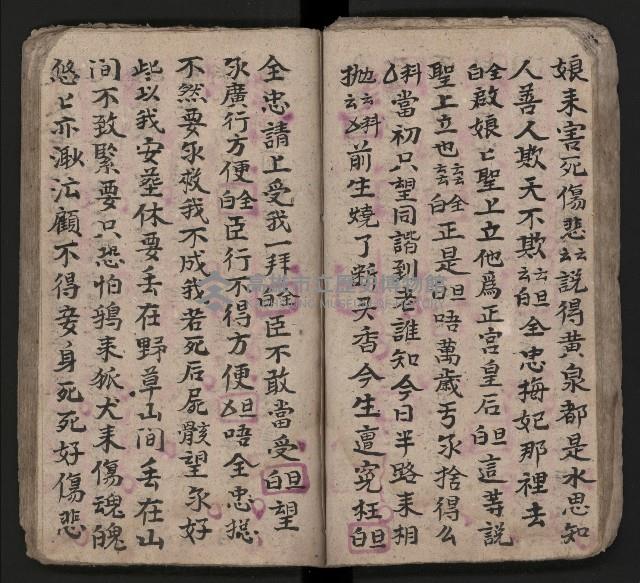 娘耒害死傷悲云云說得黃泉都是水思知
人善人欺天不欺云云白旦全忠梅妃那裡去
白全啟娘〻聖上立他爲正宮皇后白旦這等說
聖上立也云云白全正是白旦唔萬歲亐永捨得么
科當初只望同諧到老誰知今日半路耒相
拋云云科前生燒了斷头香今生遭冤枉白旦
全忠請上受我一拜白全臣不敢當受白旦望
永廣行方便白全臣行不得方便旦唔全忠挷
不然要永救我不成我若死后屍骸望永好
些以我安塟休要丢在野草山間丢在山
间不致緊要只恐怕鴉耒狐犬耒傷魂魄
悠〻亦渺茫顧不得妾身死死好傷悲
高雄市立歷史博物館